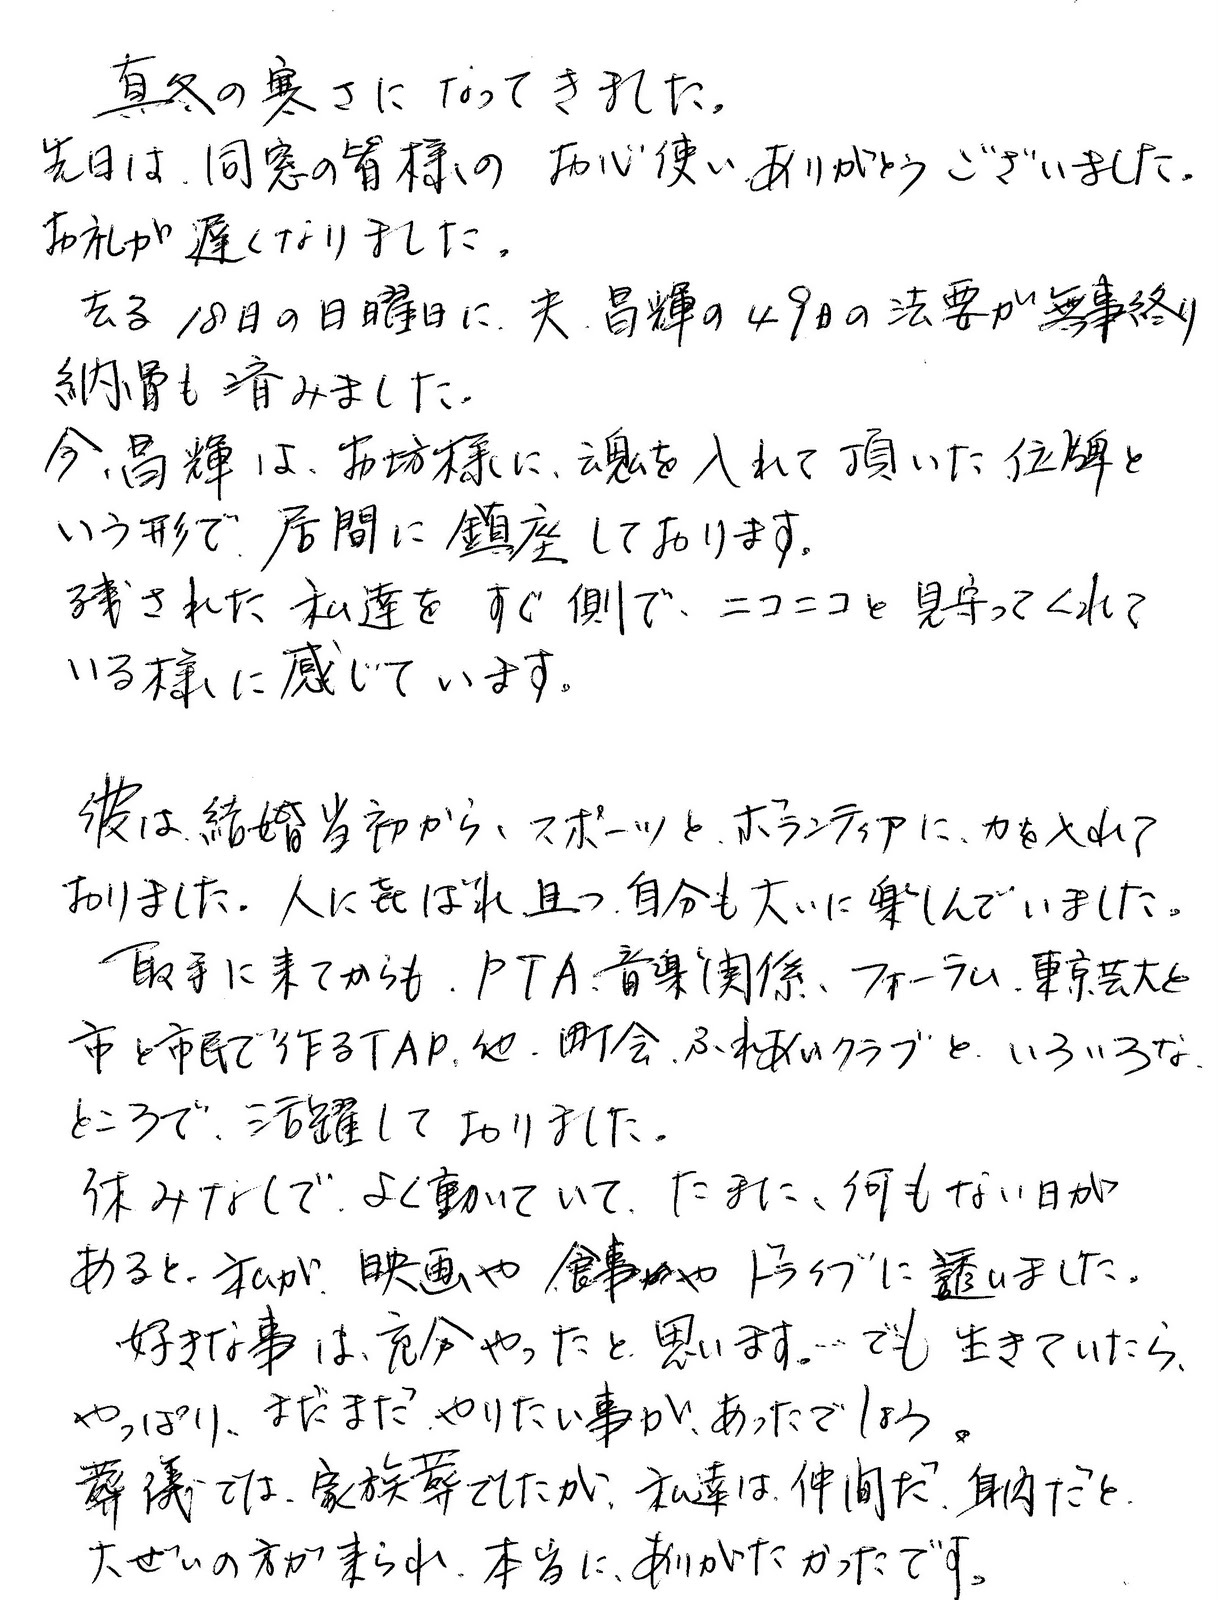 真冬の寒さになってきました。
先日は、同窓の皆様のお心使いありがとうございました。
お礼が遅くなりました。
去る18日の日曜日に、夫、昌輝の49日の法要が無事終り
納骨も済みました。
今、昌輝は、お坊様に、魂を入れて頂いた位牌と
いう形で、居間に鎮座しております。
残された私達をすぐ側で、ニコニコと見守ってくれて
いる様に感じています。
彼は、結婚当初から、スポーツと、ボランティアに、力を入れて
おりました。人に喜ばれ、且つ、自分も大いに楽しんでいました。
取手に来てからも、PTA、音楽関係、フォーラム、東京芸大と
市と市民で作るTAP、他、町会、ふれあいクラブと、いろいろな
ところで、活躍しておりました。
休みなしで、よく動いていて、たまに、何もない日が
あると、私が、映画や食事やドライブに誘いました。
好きな事は、充分やったと思います。…でも生きていたら、
やっぱり、まだまだやりたい事が、あったでしょう。
葬儀では、家族葬でしたが、私達は、仲間だ、身内だと、
大ぜいの方が来られ、本当に、ありがたかったです。